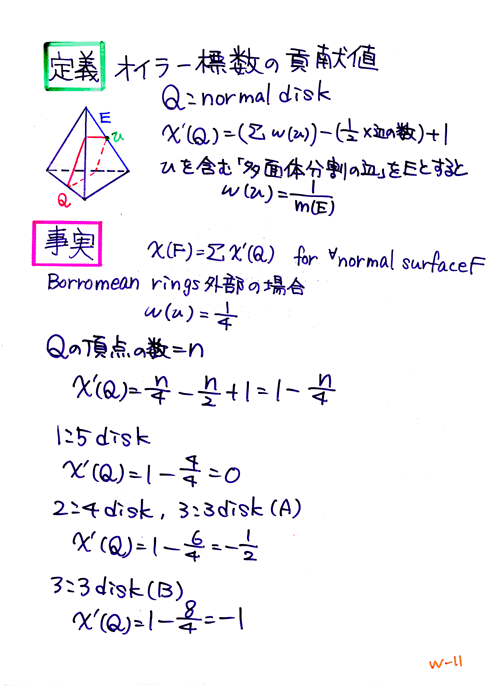 定義 オイラー標数の貢献値
Q=normal disk
χ'(Q)=(Σw(u))-(1/2×辺の数)+1
uを含む「多面体分割の辺」をEとすると
w(u)=1/m(E)
E
u
Q
事実 χ(F)=Σχ'(Q) for ∀normal surface F
Borromean rings外部の場合
w(u)=1/4
Qの頂点の数=n
χ'(Q)=n/4-n/2+1=1-n/4
1:5 disk
χ'(Q)=1-4/4=0
2:4 disk, 3:3 disk(A)
χ'(Q)=1-6/4=-1/2
3:3 disk(B)
χ'(Q)=1-8/4=-1
W-11